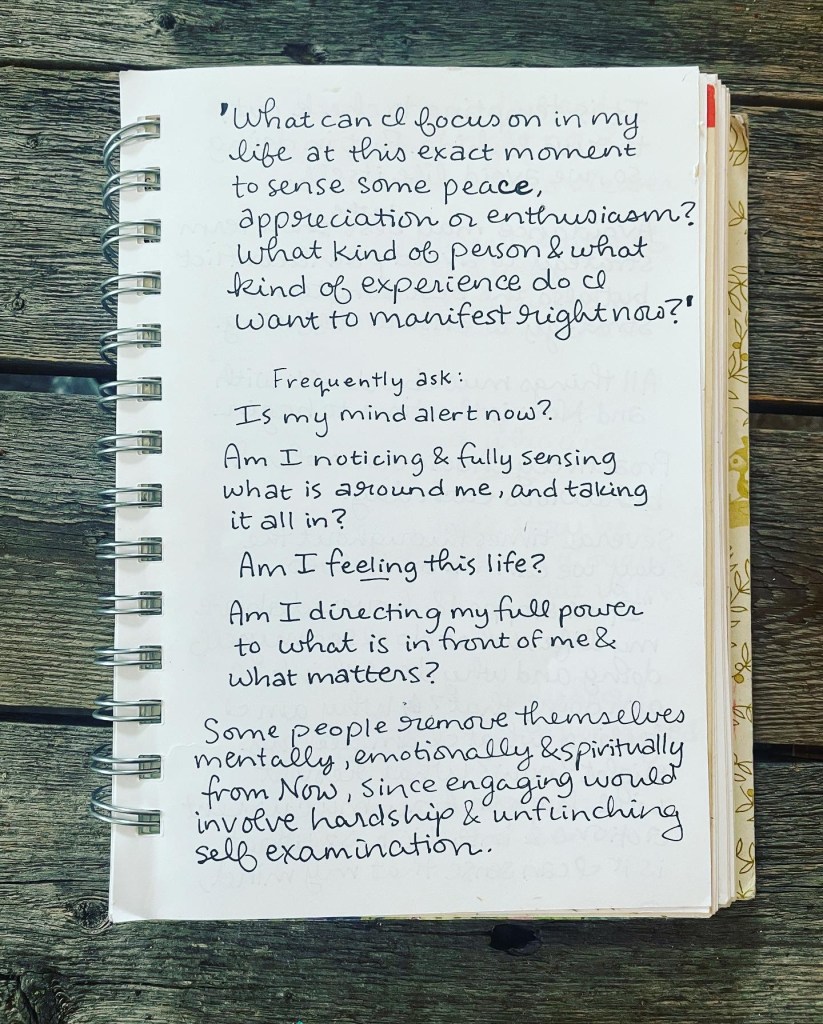 'What can I focus on in my
life at this exact moment
to sense some peace,
appreciation or enthusiasm?
What kind of person & what
kind of experience do I
want to manifest right now?'
Frequently ask:
Is my mind alert now?
Am I noticing & fully sensing
what is around me, and taking
it all in?
Am I feeling this life?
Am I directing my full power
to what is in front of me &
what matters?
Some people remove themselves
mentally, emotionally & spiritually
from Now, since engaging would
involve hardship & unflinching
self examination.